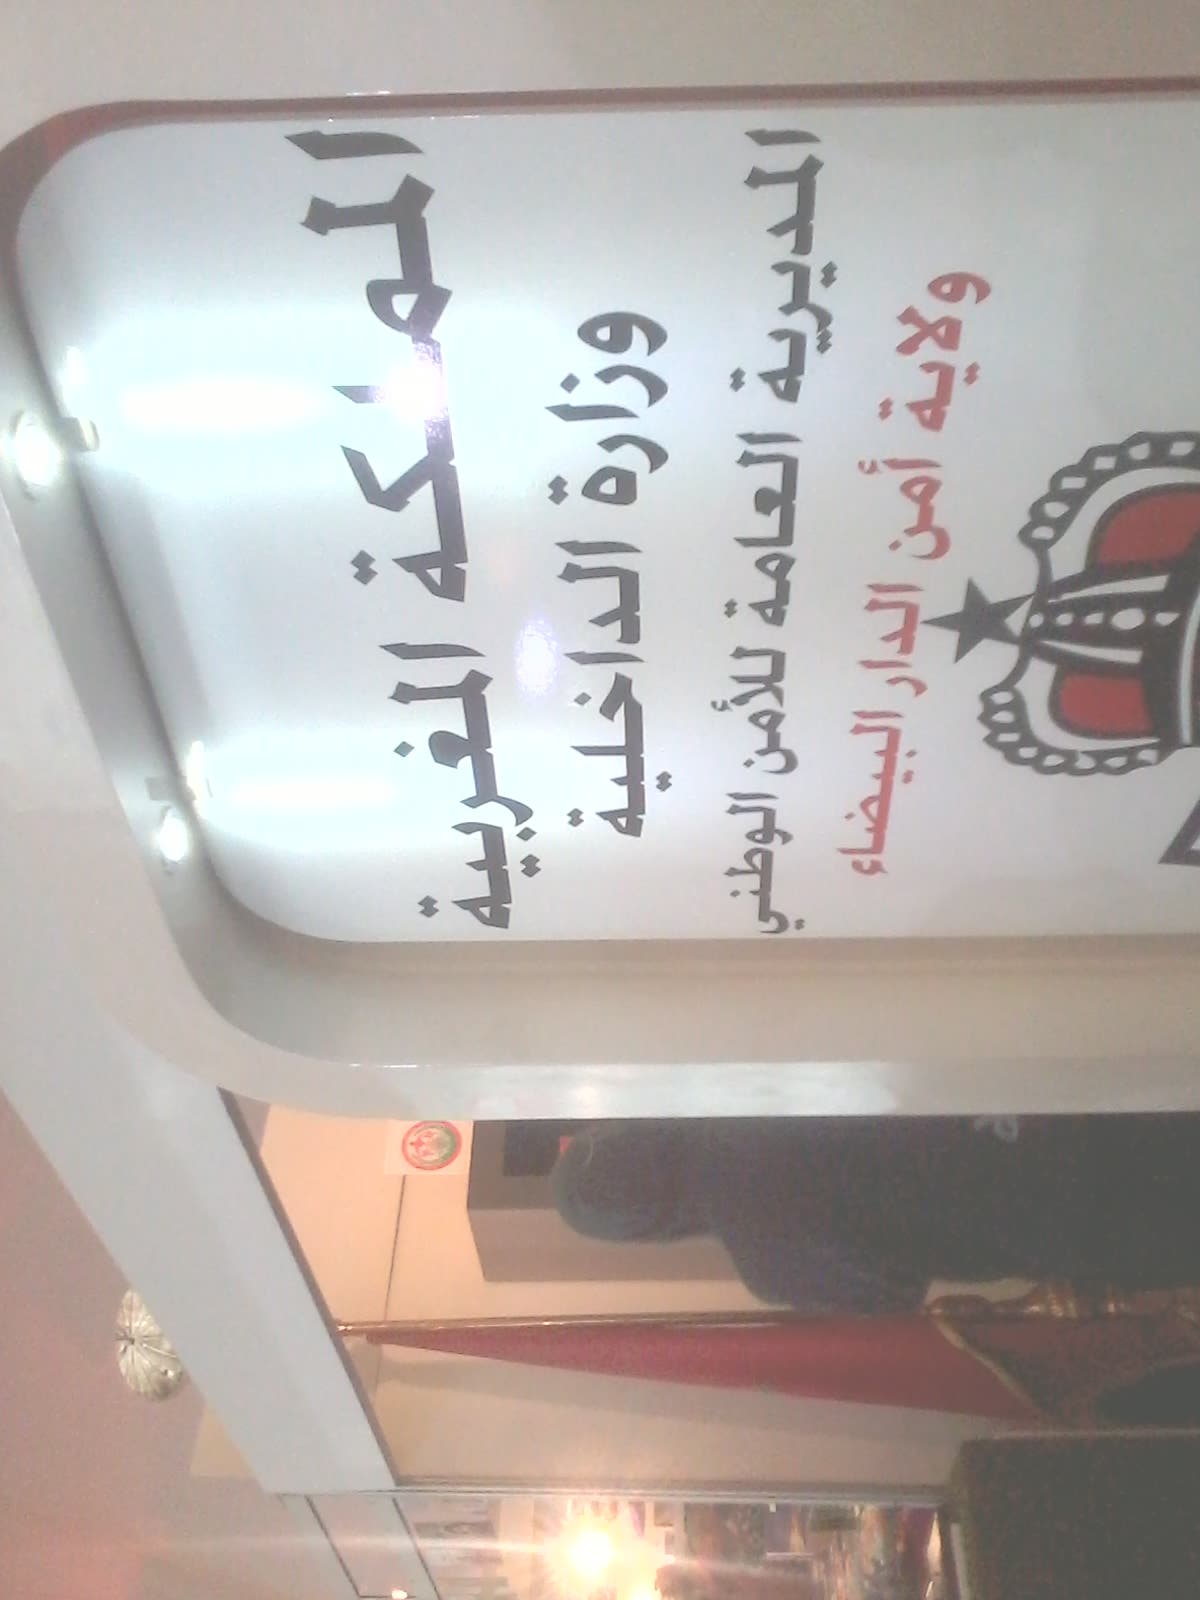 المملكة المغربية
وزارة الداخلية
المديرية العامة للأمن الوطني
ولاية أمن الدار البيضاء